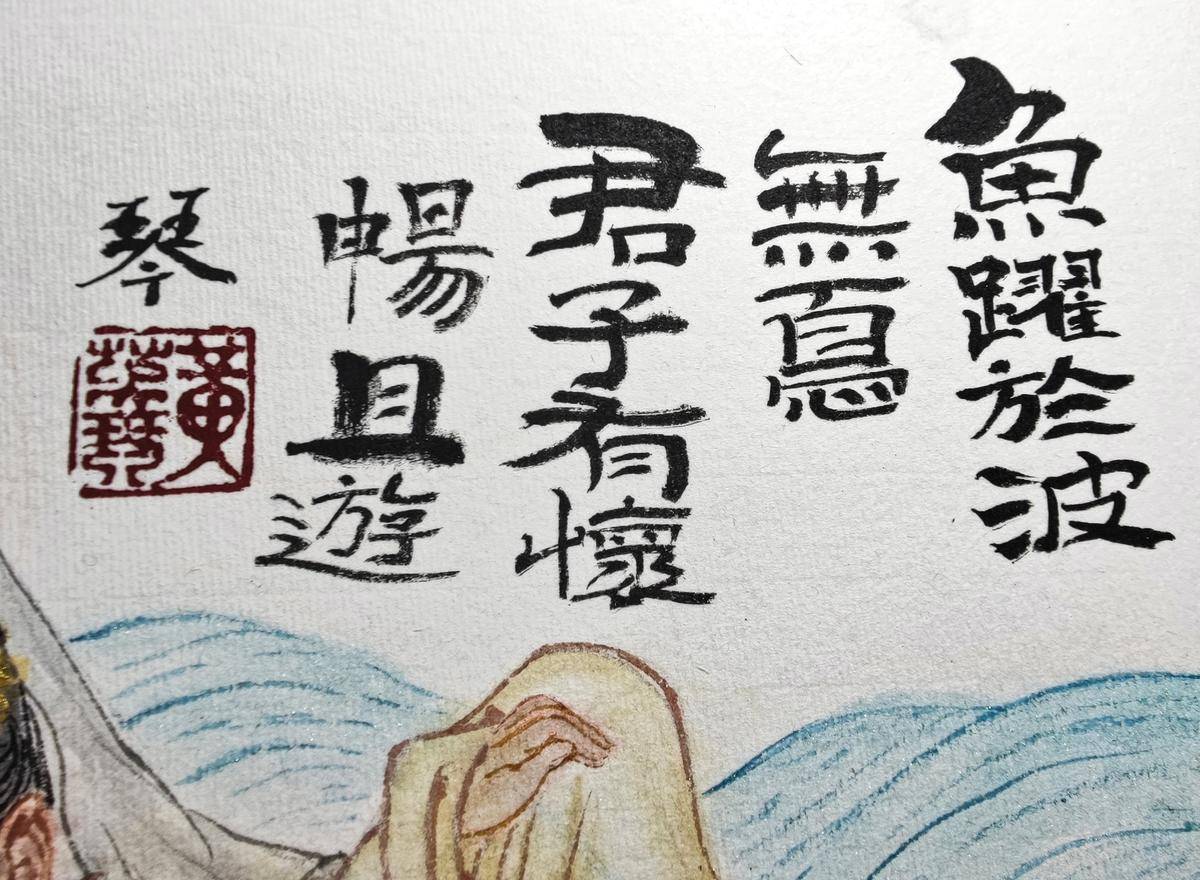 魚躍於波
無憂
君子有懷
暢且遊
琴
黃